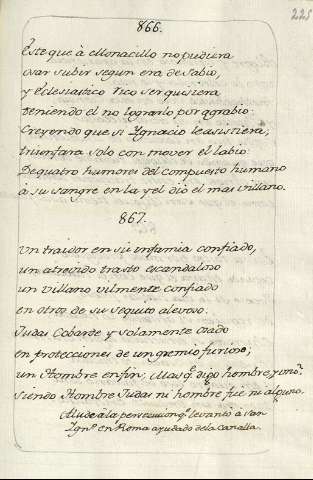 225
866.
Este que à Monacillo no pudiera
osar subir segun era de sabio,
y Eclesiastico rico ser quisiera
teniendo el no lograrlo por agrabio:
Creyendo que si Ignacio le asistiera,
triunfara solo con mover el labio:
De quatro humores del compuesto humano
à su sangre en la yel diò el mas villano.
867.
Un traidor en su infamia confiado,
un atrevido trasto escandaloso
un villano vilmente confiado
en otros de su sequito alevoso.
Judas Cobarde y solamente osado
en protecciones de un gremio furioso;
un Hombre enfin; Mas q. digo hombre, yo no?
siendo Hombre Judas ni hombre fue ni alguno.
Alude à la persecucion q. levantò à San
Ign.º en Roma ayudado de la Canalla.